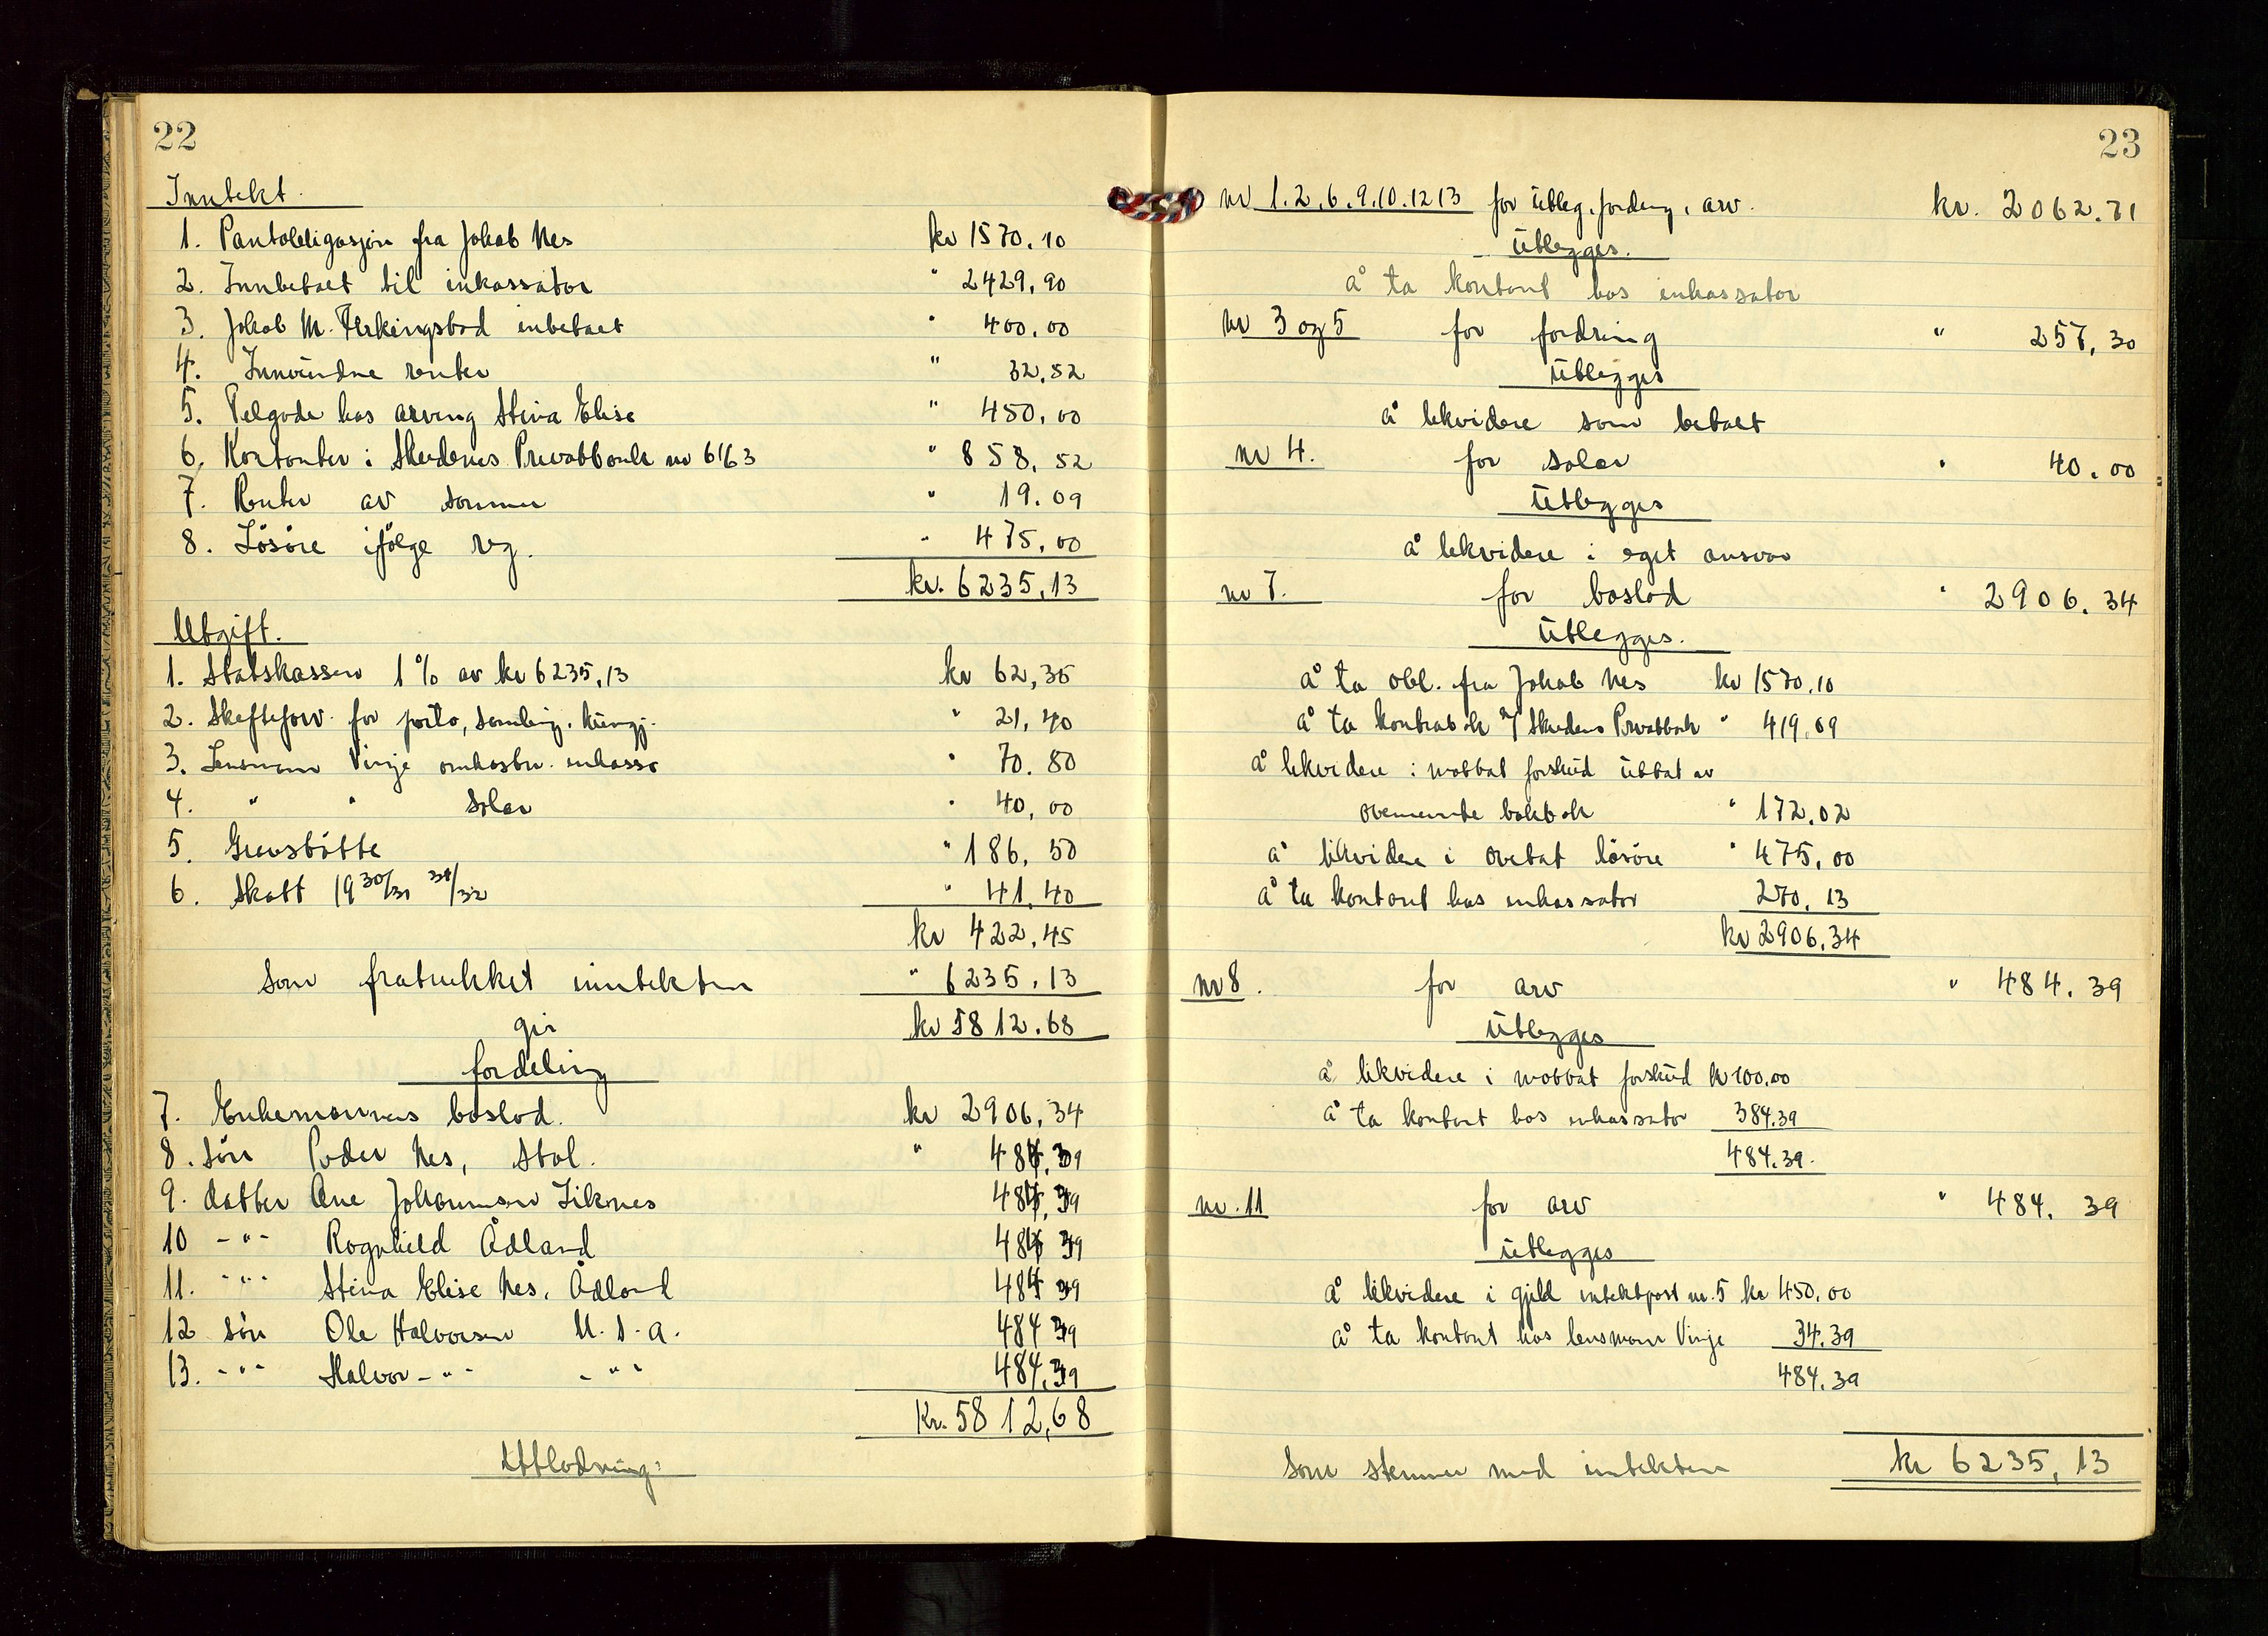 22
Inntekt.
1. Pantobligasjon fra Jakob Nes kr 1570.10
2. Innbetalt til inkassator " 2429,90
3. Jakob M. Ferkingstad inbetalt " 400.00
4. Innvundne renter " 32,52
5. Tilgode hos arving Stina Elise " 450,00
6. Kontanter i Skudenes Privatbank nr 6163 " 858,52
7. Renter av samme " 19.09
8. Lösöre ifölge reg. " 475,00
kr. 6235,13
Utgift.
1. Statskassen 1% av kr 6235,13 kr 62,35
2. Skifteforv. for porto, samling, kungj. " 21,40
3. Lensmann Vinje omkostn. inkasso " 70.80
4. " " Solær " 40,00
5. Gravstötte " 186,50
6. Skatt 1930/31 31/32 " 41,40
kr 422,45
som fratrukket inntekten " 6235,13
gir kr 5812.68
fordeling
7. Enkemannens boslod. kr 2906,34
8. sön Peder Nes, Stol. " 484,39
9. datter Ane Johannesen Liknes 484,39
10 -"- Rognhild Ådland 484 39
11. -"- Stina Elise Nes, Ådland 484 39
12 sön Ole Halvorsen U.S.A. 484 39
13. -"- Halvor -"- -"- 484,39
Kr. 5812,68
Utlodning:
23
nr 1.2.6.9.10.12 13 for utleg, fordring, arv. kr. 2062.71
Utlegges.
å ta kontant hos inkassator
nr 3 og 5 for fordring " 257,30
Utlegges
å likvidere som betalt
nr 4. for solær " 40.00
Utlegges
å likvidere i eget ansvar
nr 7. for boslod " 2906.34
Utlegges.
å ta obl. fra Jakob Nes kr 1570.10
å ta kontrabok m/ Skudenes Privatbank " 419.09
å likvidere i mottat forskud uttat av
ovennevnte bankbok " 172.02
å likvidere i overtat lösöre " 475,00
å ta kontant hos inkassator 270.13
kr 2906,34
nr 8. for arv " 484.39
Utlegges
å likvidere i mottat forskud kr 100.00
å ta kontant hos inkassator 384.39
484.39.
nr. 11 for arv " 484. 39
Utlegges
å likvidere i gjeld intektpost nr. 5 kr 450.00
å ta kontant hos lensmann Vinje 34.39
484.39
som stemmer med inntekten kr 6235,13